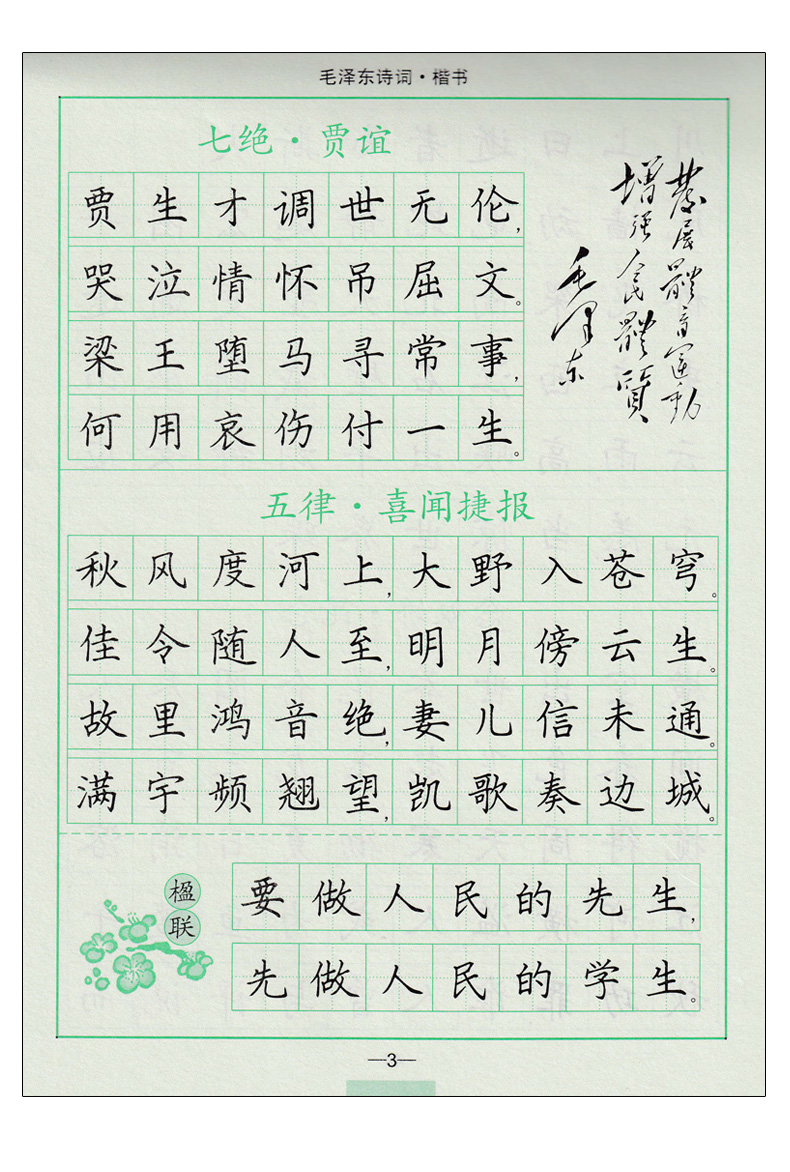 毛泽东诗词·楷书
七绝·贾谊
贾生才调世无伦,
哭泣情怀吊屈文。
梁王堕马寻常事,
何用哀伤付一生。
發展體育運動
增强人民體質
毛泽东
五律·喜闻捷报
秋风度河上,大野入苍穹。
佳令随人至,明月傍云生。
故里鸿音绝,妻儿信未通。
满宇频翘望,凯歌奏边城。
楹联
要做人民的先生,
先做人民的学生。
—3—